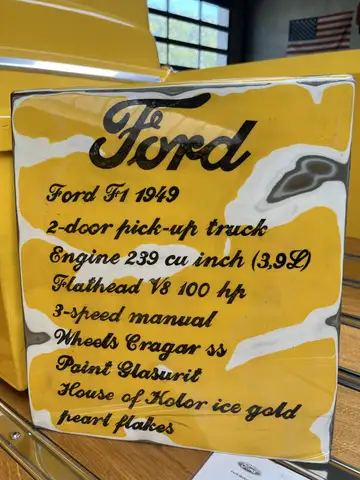 Ford
Ford F1 1949
2-door pick-up truck
Engine 239 cu inch (3,9L)
Flathead V8 100 hp
3-speed manual
Wheels Cragar ss
Paint Glasurit
House of Kolor ice gold
pearl flakes